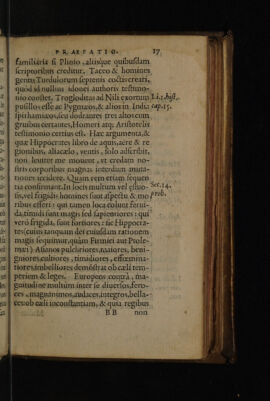 PRAEFATIO. 17
familiaria si Plinio, aliisque quibusdam
scriptoribus creditur. Taceo & homines
gentis Turdulorum septenis coctis creari,
quod id nullius idonei authoris testimo-
nio constet. Trogloditas ad Nili exortum
pusillos esse ac Pygmæos, & alios in India
ipsis hamaxicos,
gruibus certantes, Homeri atq; Aristotelis
testimonio certius est. Hæc argumenta, &
quæ Hippocrates libro de aquis, aëre & re
gionibus, aliàs locis, ventis, solo adscribit,
non leuiter me mouent, vt credam no-
stris corporibus magnas interdum muta-
tiones accidere. Quam rem etiam sequen
tia confirmant. In locis multum vel æstuo
sis, vel frigidis homines sunt aspectu & mo
ribus efferi: qui tamen loca colunt feruì-
da, timidi sunt magis sed sapientiores: qui
verò frigida, sunt fortiores: sic Hippocra-
tes (cuius tanquam dei cuiusdam rationem
magis sequimur, quàm Firmici aut Ptole-
mæi) Asianos pulchriores, maiores, beni-
gniores, cultiores, timidiores, effœmina-
tiores, imbelliores demõstrat ob cæli tem
periem & leges. Europeos contrà, ma-
gnitudine multùm inter se diuersos, fero-
ces, magnanimos, audaces, integros, bella-
ces: ob cæli inconstantiam, & quia regibus
BB non
Li.; hist.
cap.15.
Sec.14.
prob.